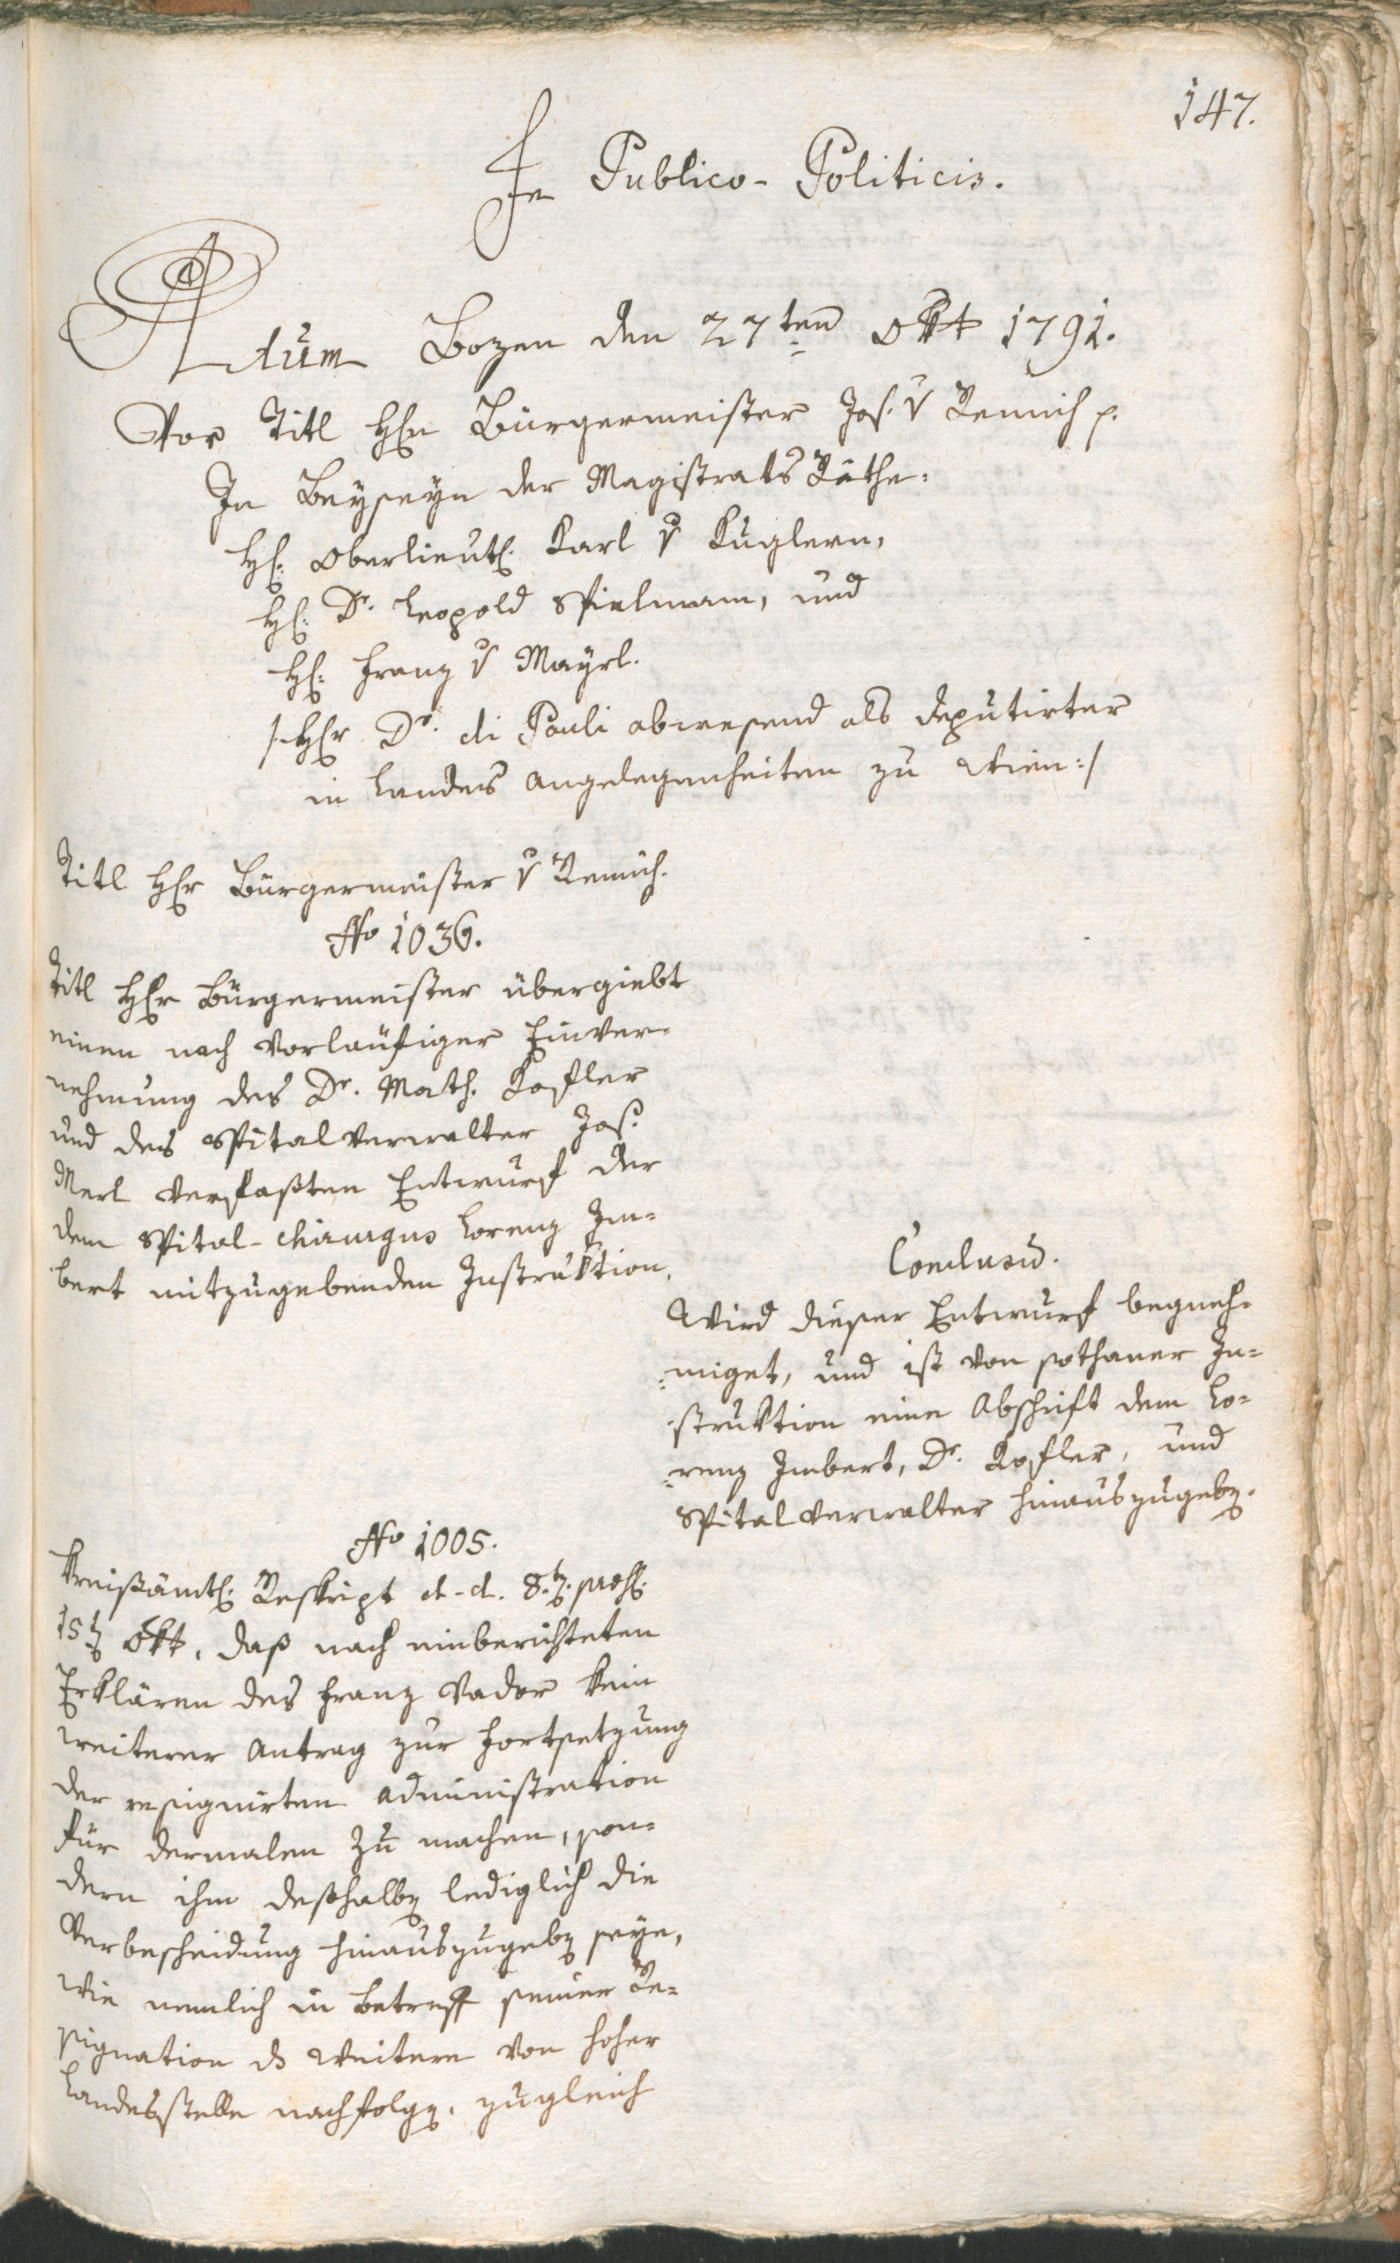 147.
In Publico-Politicis.
Actum Bozen den 27ten Okt 1791.
Vor Titl Hℓn Bürgermeister Jos. v Remich p.
In Beyseyn der Magistrats Räthe.
Hℓ: Oberlieutℓ. Karl v Kuglern,
Hℓ: Dr. Leopold Spielmann, und
Hℓ: Franz v Mayrl.
/:Hℓr Dr. di Pauli abwesend als Deputirter
in Landes Angelegenheiten zu Wien:/
Titl Hℓr Bürgermeister v Remich.
No 1036.
Titl Hℓr Bürgermeister übergiebt
einen nach vorläufiger Einver=
nehmung des Dr. Math. Kofler
und des Spitalverwalter Jos.
Merl verfaßten Entwurf der
dem Spital-chirurgus Lorenz Im=
bert mitzugebenden Instruktion.
Conclusu͞.
Wird dieser Entwurf begneh=
miget, und ist von sothaner In=
struktion eine Abschrift dem Lo=
renz Imbert, Dr. Kofler, und
Spitalverwalter hinauszugebꝫ.
No 1005.
Kreisämtℓ. Reskript d-d. 8.tꝫ. præsℓ.
15tꝫ Okt. daß nach einberichteten
Erklären des Franz Vador kein
weiterer Antrag zur Fortsetzung
der resignirten Administration
für dermalen zu machen, son=
dern ihm deßhalbꝫ lediglich die
Verbescheidung hinauszugebꝫ seye,
wie nemlich in Betreff seiner Re=
signation ds Weitere von hoher
Landesstelle nachfolge. zugleich